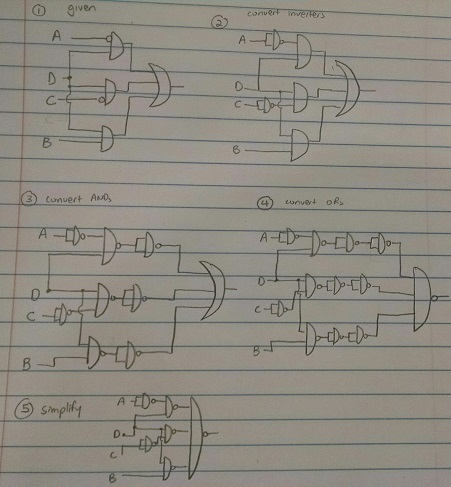 ① given
A
D
C
B
② convert inverters
A
D
C
B
③ convert ANDs
A
D
C
B
④ convert ORs
A
D
C
B
⑤ simplify
A
D
C
B